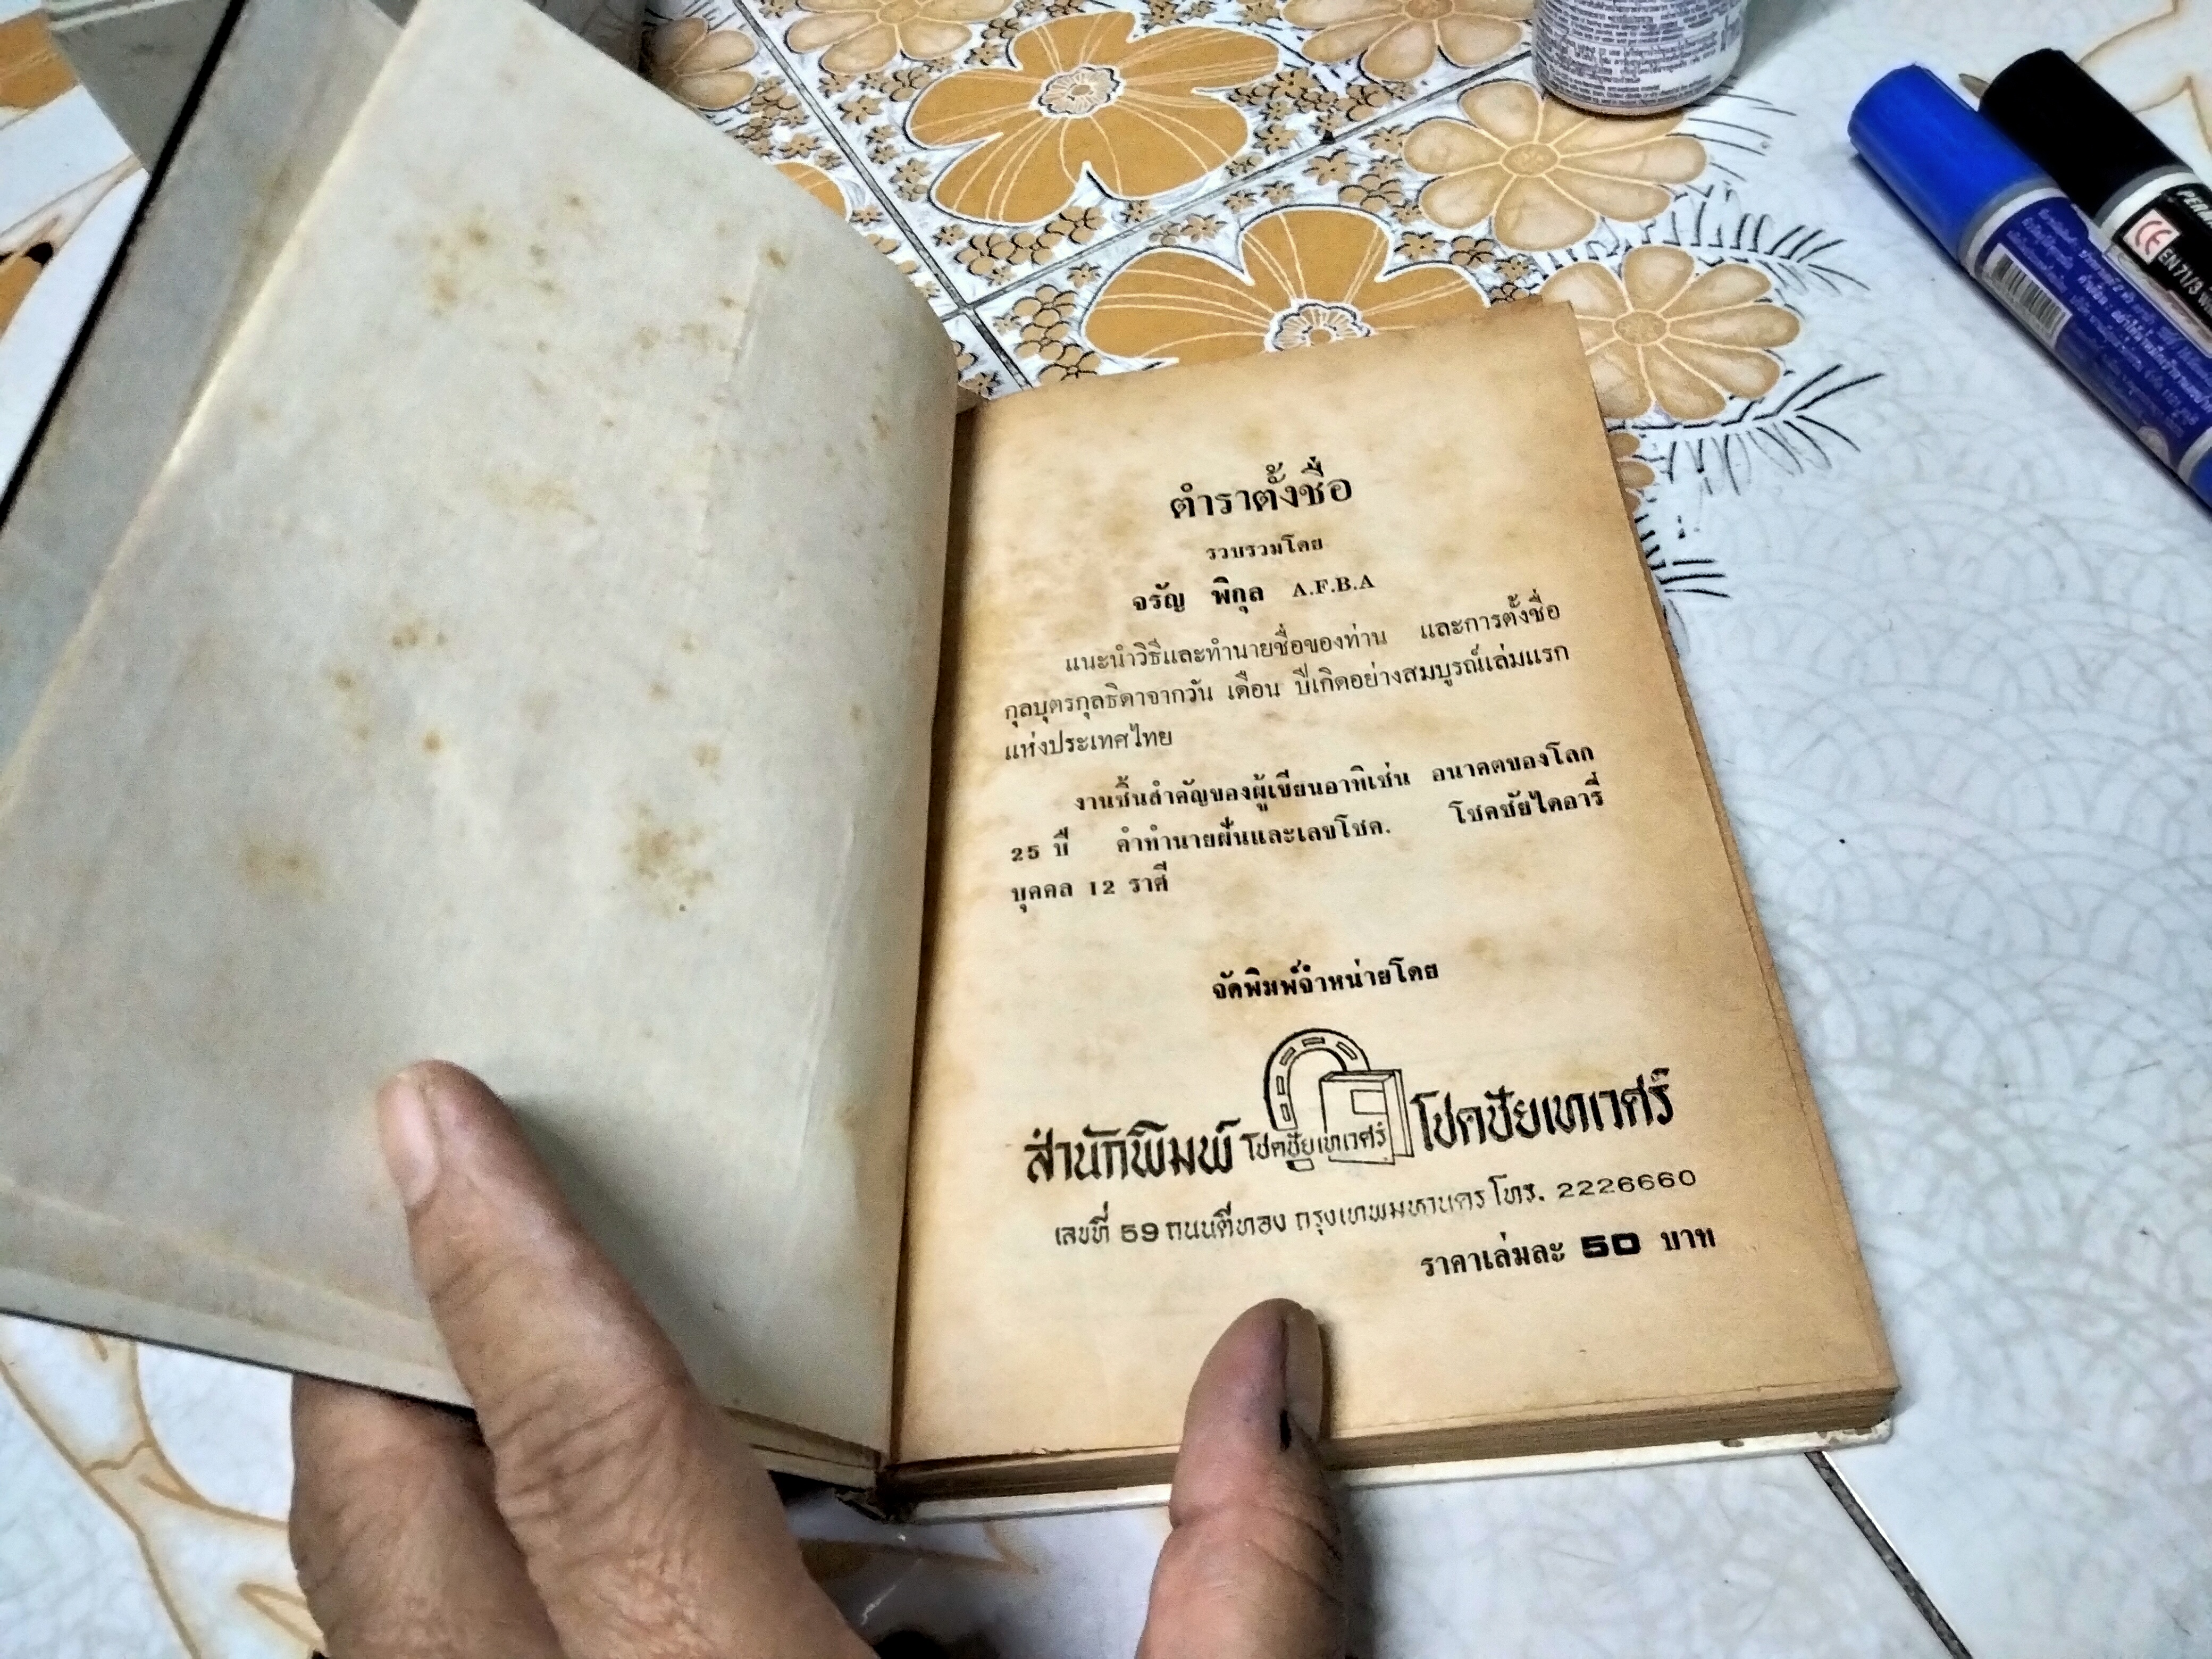 ตำราตั้งชื่อ
รวบรวมโดย
จรัญ พิกุล A.F.B.A
แนะนำวิธีและทำนายชื่อของท่าน และการตั้งชื่อ
กุลบุตรกุลธิดาจากวัน เดือน ปีเกิดอย่างสมบูรณ์เล่มแรก
แห่งประเทศไทย
งานชิ้นสำคัญของผู้เขียนอาทิเช่น อนาคตของโลก
25 ปี คำทำนายฝันและเลขโชค. โชคชัยไดอารี่
บุคคล 12 ราศี
จัดพิมพ์จำหน่ายโดย
สำนักพิมพ์ โชคชัยเทเวศร์ โชคชัยเทเวศร์
เลขที่ 59 ถนนตีทอง กรุงเทพมหานคร โทร. 2226660
ราคาเล่มละ 50 บาท
PEN
CE
EN 71/3